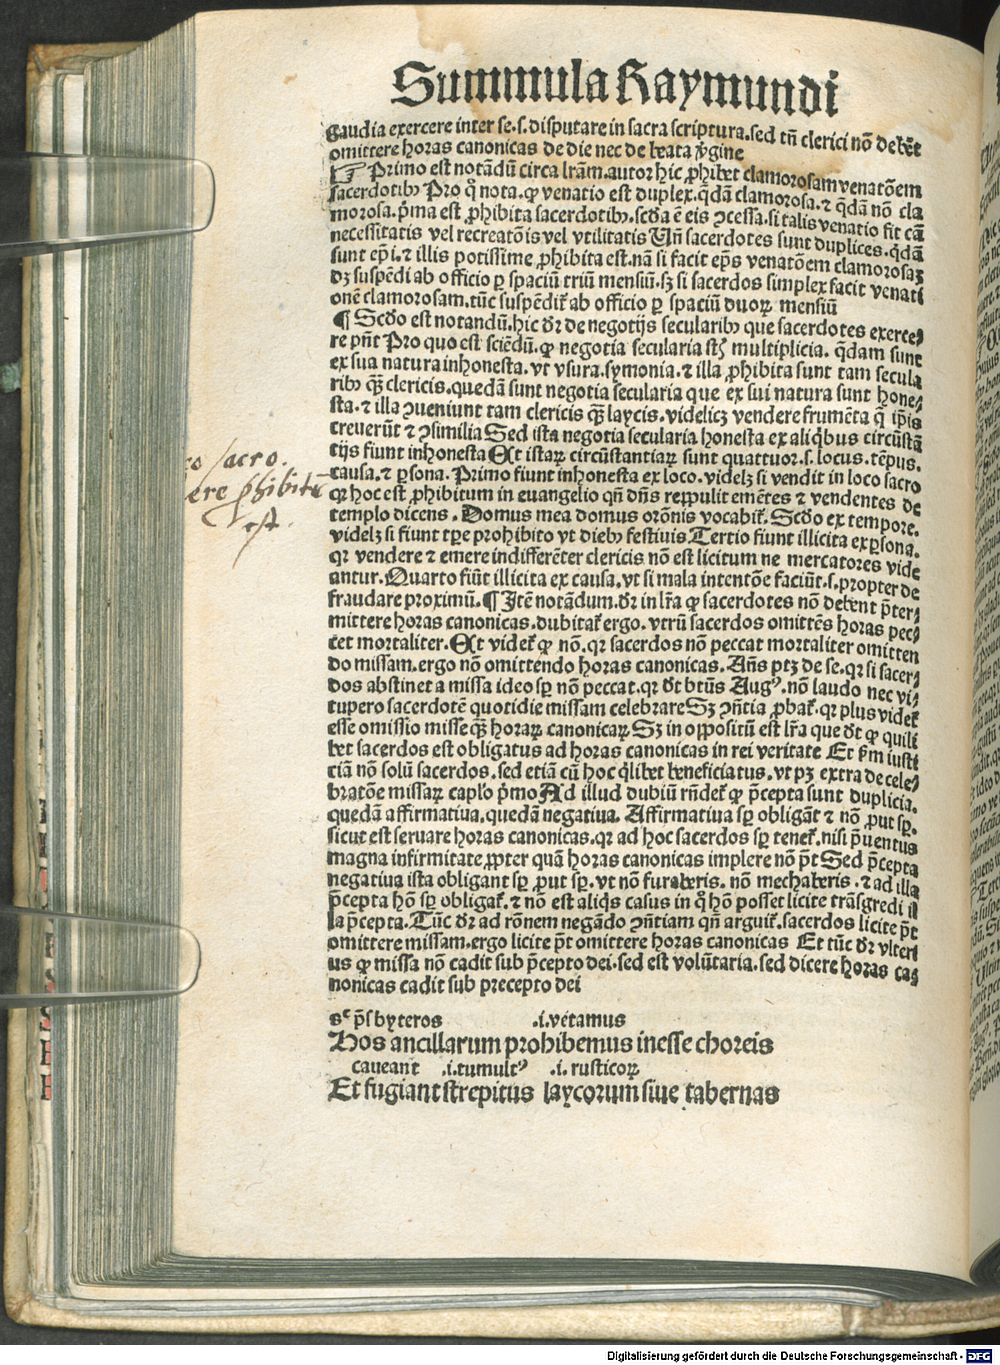 Summula Raymundi
gaudia exercere inter se.s.disputare in sacra scriptura.sed tñ clerici nõ debẽt
omittere horas canonicas de die nec de beata v̓gine
☞ Primo est notãdũ circa lr̃am.autor hic ꝓhibet clamorosam venatõem
sacerdotibꝰ Pro q̊ nota.ꝙ venatio est duplex.q̃dã clamorosa.⁊ q̃dã nõ cla
morosa.p̃ma est ꝓhibita sacerdotibꝰ.sc̃da ẽ eis ꝯcessa.si talis venatio fit cã
necessitatis vel recreatõis vel vtilitatis Uñ sacerdotes sunt duplices.q̃dã
sunt ep̃i.⁊ illis potissime ꝓhibita est.nã si facit ep̃s venatõem clamorosaꝫ
dꝫ suspẽdi ab officio ꝑ spaciũ triũ mensiũ.sꝫ si sacerdos simplex facit venati
onẽ clamorosam.tũc suspẽdit̃ ab officio ꝑ spaciũ duoꝝ mensiũ
¶ Scd̃o est notandũ.hic dr̃ de negotijs secularibꝰ que sacerdotes exerce⸗
re pñt Pro quo est sciẽdũ.ꝙ negotia secularia st̃ multiplicia. q̃dam sunt
ex sua natura inhonesta.vt vsura.symonia.⁊ illa ꝓhibita sunt tam secula
ribꝰ q̃ꝫ clericis.quedã sunt negotia secularia que ex sui natura sunt hone⸗
sta.⁊ illa ꝯueniunt tam clericis q̃ꝫ laycis.videlicꝫ vendere frumẽta q̃ ip̃is
creuerũt ⁊ ꝯsimilia Sed ista negotia secularia honesta ex aliq̇bus circũstã
tijs fiunt inhonesta Et istaꝝ circũstantiaꝝ sunt quattuor.s.locus.tẽpus.
causa.⁊ ꝑsona. Primo fiunt inhonesta ex loco.videlꝫ si vendit in loco sacro
qꝛ hoc est ꝓhibitum in euangelio qñ dñs reppulit emẽtes ⁊ vendentes de
templo dicens.Domus mea domus orõnis vocabit̃.Scd̃o ex tempore.
videlꝫ si fiunt tꝑe prohibito vt diebꝰ festiuis.Tertio fiunt illicita ex ꝑsona.
qꝛ vendere ⁊ emere indifferẽter clericis nõ est licitum ne mercatores vide
antur.Quarto fiũt illicita ex causa.vt si mala intentõe faciũt.s.propter de
fraudare proximũ.¶ Itẽ notãdum.dr̃ in lr̃a ꝙ sacerdotes nõ debent p̃ter⸗
mittere horas canonicas.dubitat̃ ergo.vtrũ sacerdos omittẽs horas pec⸗
cet mortaliter.Et videt̃ ꝙ nõ.qꝛ sacerdos nõ peccat mortaliter omitten
do missam.ergo nõ omittendo horas canonicas. Añs ptꝫ de se.qꝛ si sacer⸗
dos abstinet a missa ideo sꝑ nõ peccat.qꝛ dt̃ btũs Augꝰ.nõ laudo nec vi⸗
tupero sacerdotẽ quotidie missam celebrare Sꝫ ꝯñtia ꝓbat̃.qꝛ plus videt̃
esse omissio misse q̃ꝫ horaꝝ canonicaꝝ Sꝫ in oppositũ est lr̃a que dt̃ ꝙ quili
bet sacerdos est obligatus ad horas canonicas in rei veritate Et ẜm iusti
ciã nõ solũ sacerdos.sed etiã cũ hoc q̇libet beneficiatus.vt pꝫ extra de cele⸗
bratõe missaꝝ caplo p̃mo Ad illud dubiũ rñdet̃ ꝙ p̃cepta sunt duplicia.
quedã affirmatiua.quedã negatiua. Affirmatiua sꝑ obligãt ⁊ nõ ꝓut sꝑ.
sicut est seruare horas canonicas.qꝛ ad hoc sacerdos sꝑ tenet̃.nisi p̃uentus
magna infirmitate.ꝓpter quã horas canonicas implere nõ põt Sed p̃cepta
negatiua ista obligant sꝑ ꝓut sꝑ.vt nõ furaberis. nõ mechaberis.⁊ ad illa
p̃cepta hõ sꝑ obligat̃.⁊ nõ est aliq̇s casus in q̊ hõ posset licite trãsgredi il
la p̃cepta.Tũc dr̃ ad rõnem negãdo ꝯñtiam qñ arguit̃.sacerdos licite põt
omittere missam.ergo licite põt omittere horas canonicas Et tũc dr̃ vlteri
us ꝙ missa nõ cadit sub p̃cepto dei.sed est volũtaria.sed dicere horas ca⸗
nonicas cadit sub precepto dei
co sacro.
ere ꝓhibitũ
est.
sc̃ p̃sbyteros .i.vetamus
Hos ancillarum prohibemus inesse choreis
caueant .i.tumultꝰ .i. rusticoꝝ
Et fugiant strepitus laycorum siue tabernas
Digitalisierung gefördert durch die Deutsche Forschungsgemeinschaft - DFG